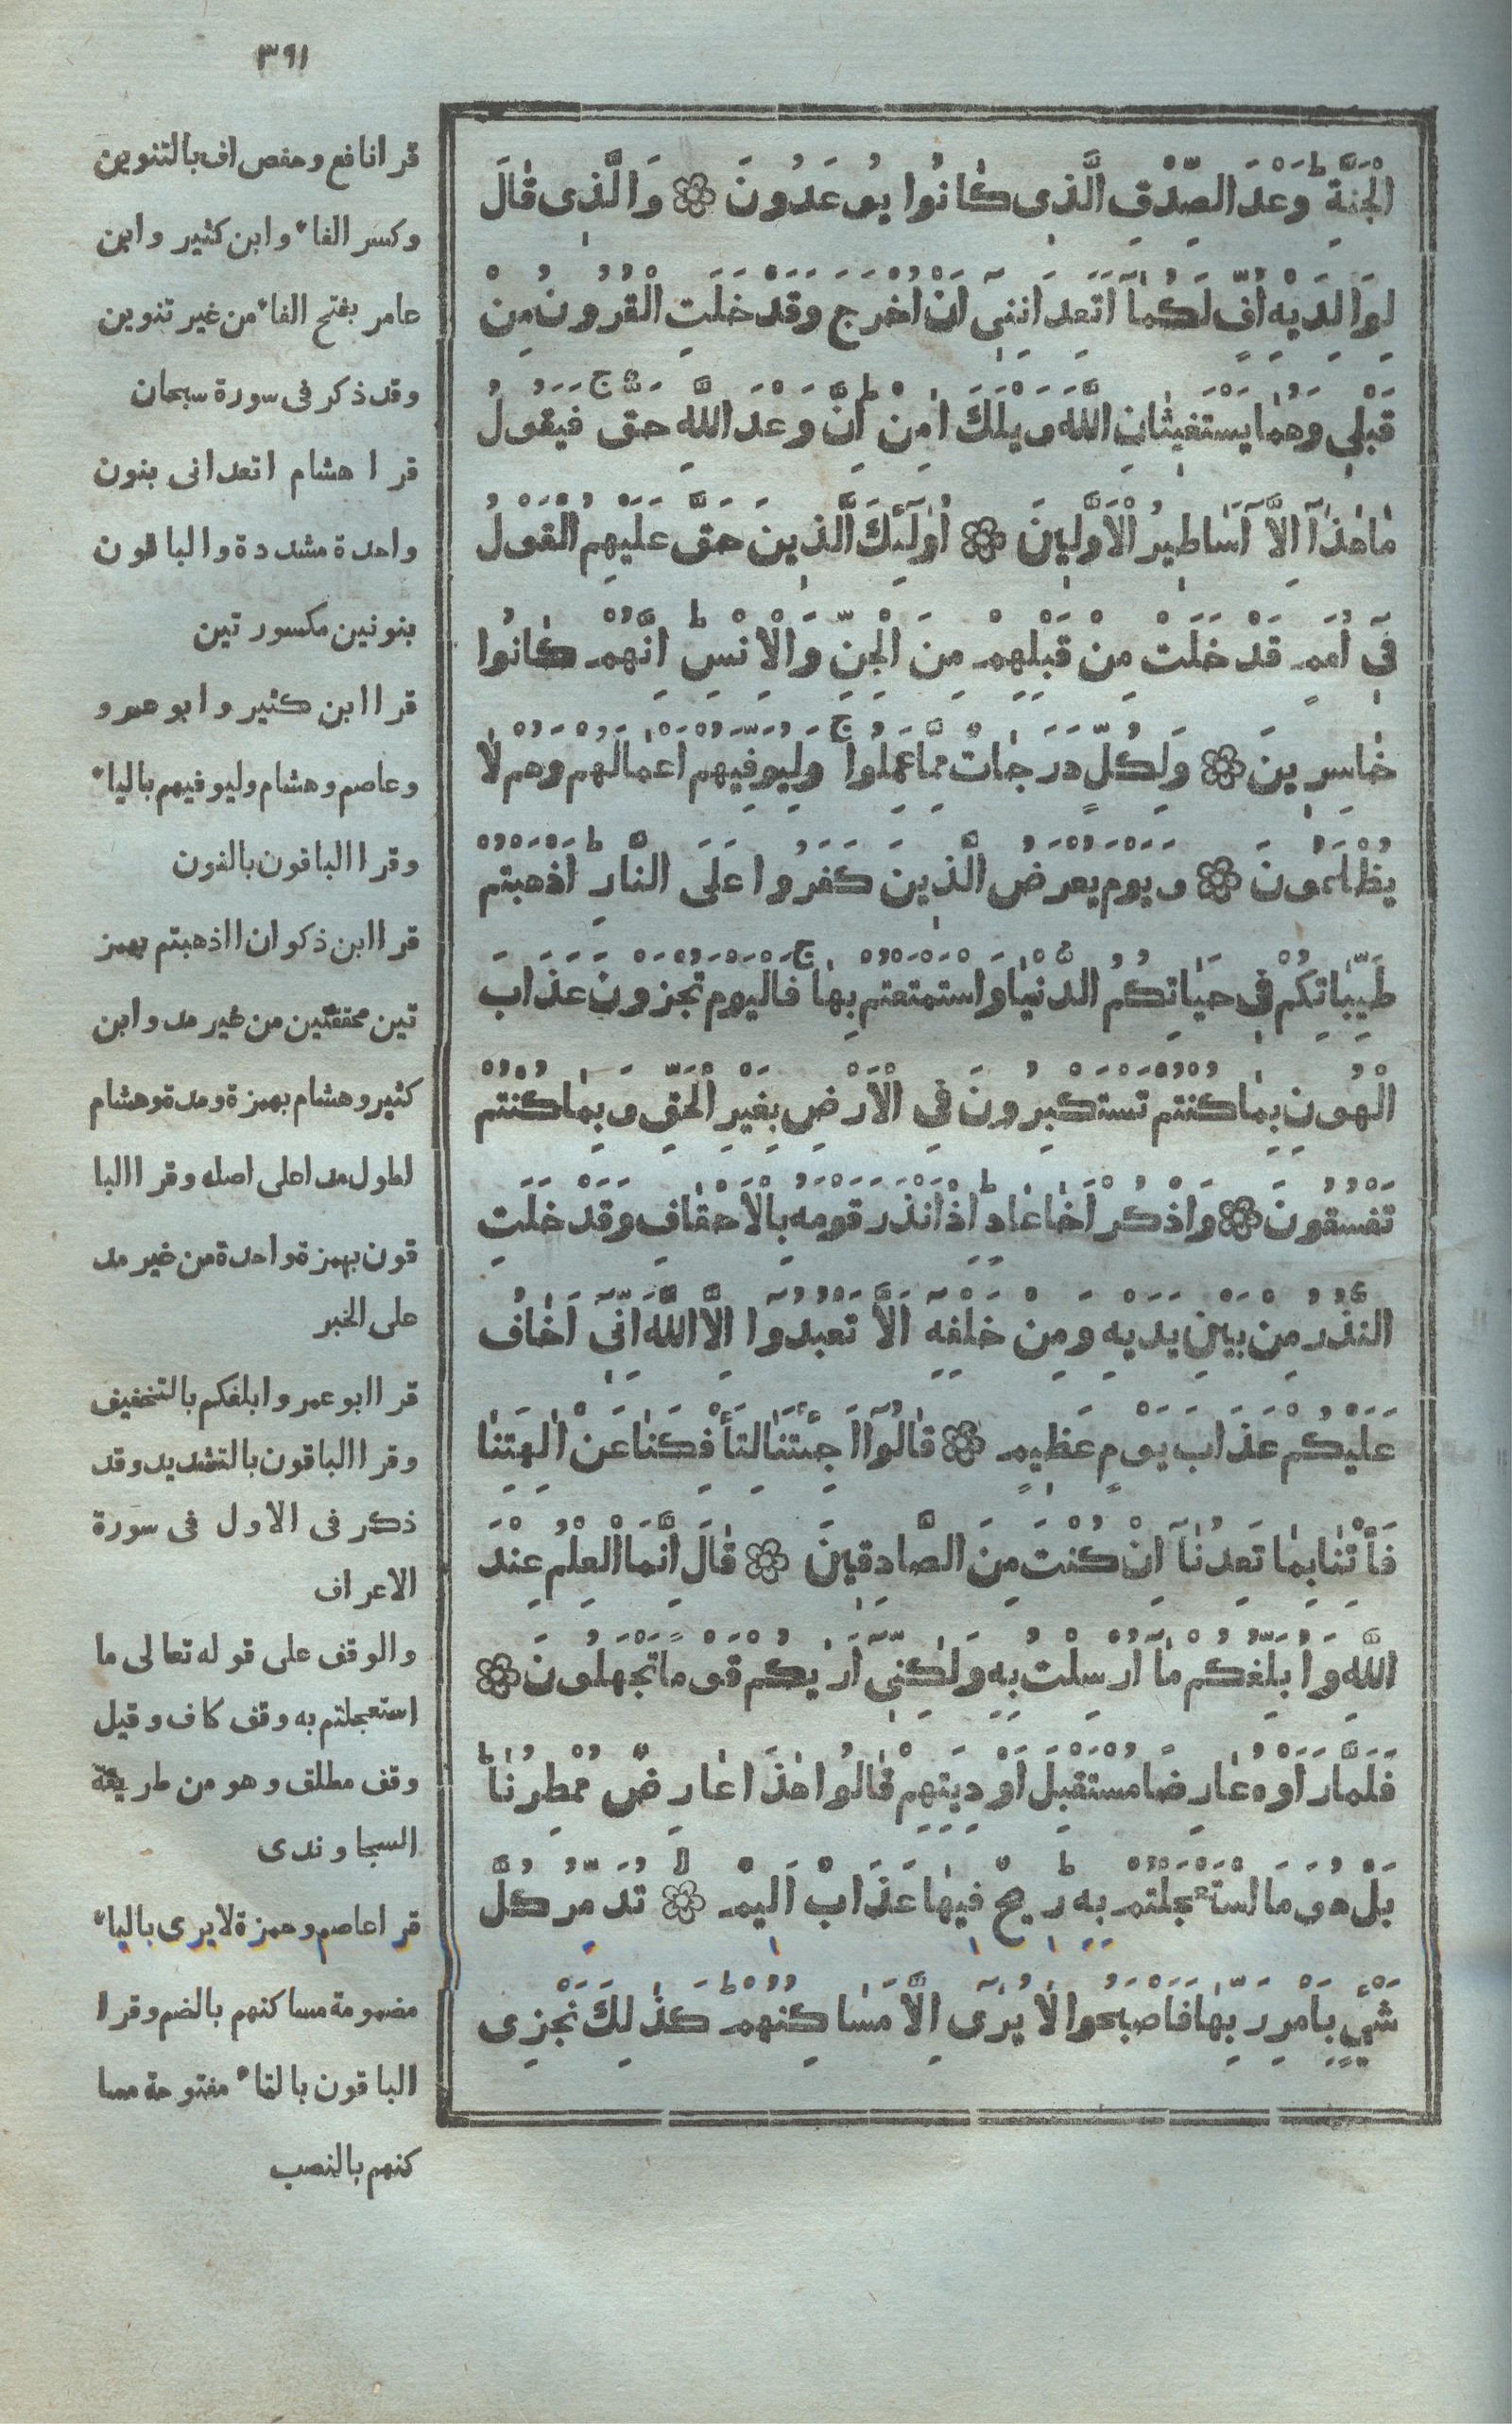 ٣٩١
الْجَنَّةِ ط وَعْدَ الصِّدْقِ الَّذٖى كَانُوا يُوعَدُونَ ۞ وَالَّذٖى قَالَ
لِوَالِدَيْهِ اُفٍّ لَكُمَا اَتَعِدَانِنٖى اَنْ اُخْرَجَ وَقَدْ خَلَتِ الْقُرُونُ مِنْ
قَبْلٖى وَهُمَا يَسْتَغٖيثَانِ اللّٰهَ وَيْلَكَ اٰمِنْ ط اِنَّ وَعْدَ اللّٰهِ حَقٌّ ج فَيَقُولُ
مَا هٰذَا اِلَّا اَسَاطٖيرُ الْاَوَّلٖينَ ۞ اُولٰئِكَ الَّذٖينَ حَقَّ عَلَيْهِمُ الْقَوْلُ
فٖى اُمَمٍ قَدْ خَلَتْ مِنْ قَبْلِهِمْ مِنَ الْجِنِّ وَالْاِنْسِ ط اِنَّهُمْ كَانُوا
خَاسِرٖينَ ۞ وَلِكُلٍّ دَرَجَاتٌ مِمَّا عَمِلُوا ج وَلِيُوَفِّيَهُمْ اَعْمَالَهُمْ وَهُمْ لَا
يُظْلَمُونَ ۞ وَيَوْمَ يُعْرَضُ الَّذٖينَ كَفَرُوا عَلَى النَّارِ ط اَذْهَبْتُمْ
طَيِّبَاتِكُمْ فٖى حَيَاتِكُمُ الدُّنْيَا وَاسْتَمْتَعْتُمْ بِهَا ج فَالْيَوْمَ تُجْزَوْنَ عَذَابَ
الْهُونِ بِمَا كُنْتُمْ تَسْتَكْبِرُونَ فِى الْاَرْضِ بِغَيْرِ الْحَقِّ وَبِمَا كُنْتُمْ
تَفْسُقُونَ ۞ وَاذْكُرْ اَخَا عَادٍ ط اِذْ اَنْذَرَ قَوْمَهُ بِالْاَحْقَافِ وَقَدْ خَلَتِ
النُّذُرُ مِنْ بَيْنِ يَدَيْهِ وَمِنْ خَلْفِهِ اَلَّا تَعْبُدُوا اِلَّا اللّٰهَ اِنّٖى اَخَافُ
عَلَيْكُمْ عَذَابَ يَوْمٍ عَظٖيمٍ ۞ قَالُوا اَجِئْتَنَا لِتَأْفِكَنَا عَنْ اٰلِهَتِنَا
فَأْتِنَا بِمَا تَعِدُنَا اِنْ كُنْتَ مِنَ الصَّادِقٖينَ ۞ قَالَ اِنَّمَا الْعِلْمُ عِنْدَ
اللّٰهِ وَاُبَلِّغُكُمْ مَا اُرْسِلْتُ بِهِ وَلٰكِنّٖى اَرٰيكُمْ قَوْمًا تَجْهَلُونَ ۞
فَلَمَّا رَاَوْهُ عَارِضًا مُسْتَقْبِلَ اَوْدِيَتِهِمْ قَالُوا هٰذَا عَارِضٌ مُمْطِرُنَا ط
بَلْ هُوَ مَا اسْتَعْجَلْتُمْ بِهِ ط رٖيحٌ فٖيهَا عَذَابٌ اَلٖيمٌ لا ۞ تُدَمِّرُ كُلَّ
شَيْئٍ بِاَمْرِ رَبِّهَا فَاَصْبَحُوا لَا يُرٰى اِلَّا مَسَاكِنُهُمْ ط كَذٰلِكَ نَجْزِى
قرا نافع وحفص اف بالتنوين
وكسر الفاء وابن كثير وابن
عامر بفتح الفاء من غير تنوين
وقد ذكر فى سورة سبحان
قرا هشام اتعدانى بنون
واحدة مشددة والباقون
بنونين مكسورتين
قرا ابن كثير وابو عمرو
وعاصم وهشام وليوفيهم بالياء
وقرا الباقون بالنون
قرا ابن ذكوان ااذهبتم بهمز
تين محققتين من غير مد وابن
كثير وهشام بهمزة ومدة وهشام
اطول مدا على اصله وقرا البا
قون بهمزة واحدة من غير مد
على الخبر
قرا ابو عمرو ابلغكم بالتخفيف
وقرا الباقون بالتشديد وقد
ذكر فى الاول فى سورة
الاعراف
والوقف على قوله تعالى ما
استعجلتم به وقف كاف وقيل
وقف مطلق وهو من طريقة
السجاوندى
قرا عاصم وحمزة لا يرى بالياء
مضمومة مساكنهم بالضم وقرا
الباقون بالتاء مفتوحة مسا
كنهم بالنصب